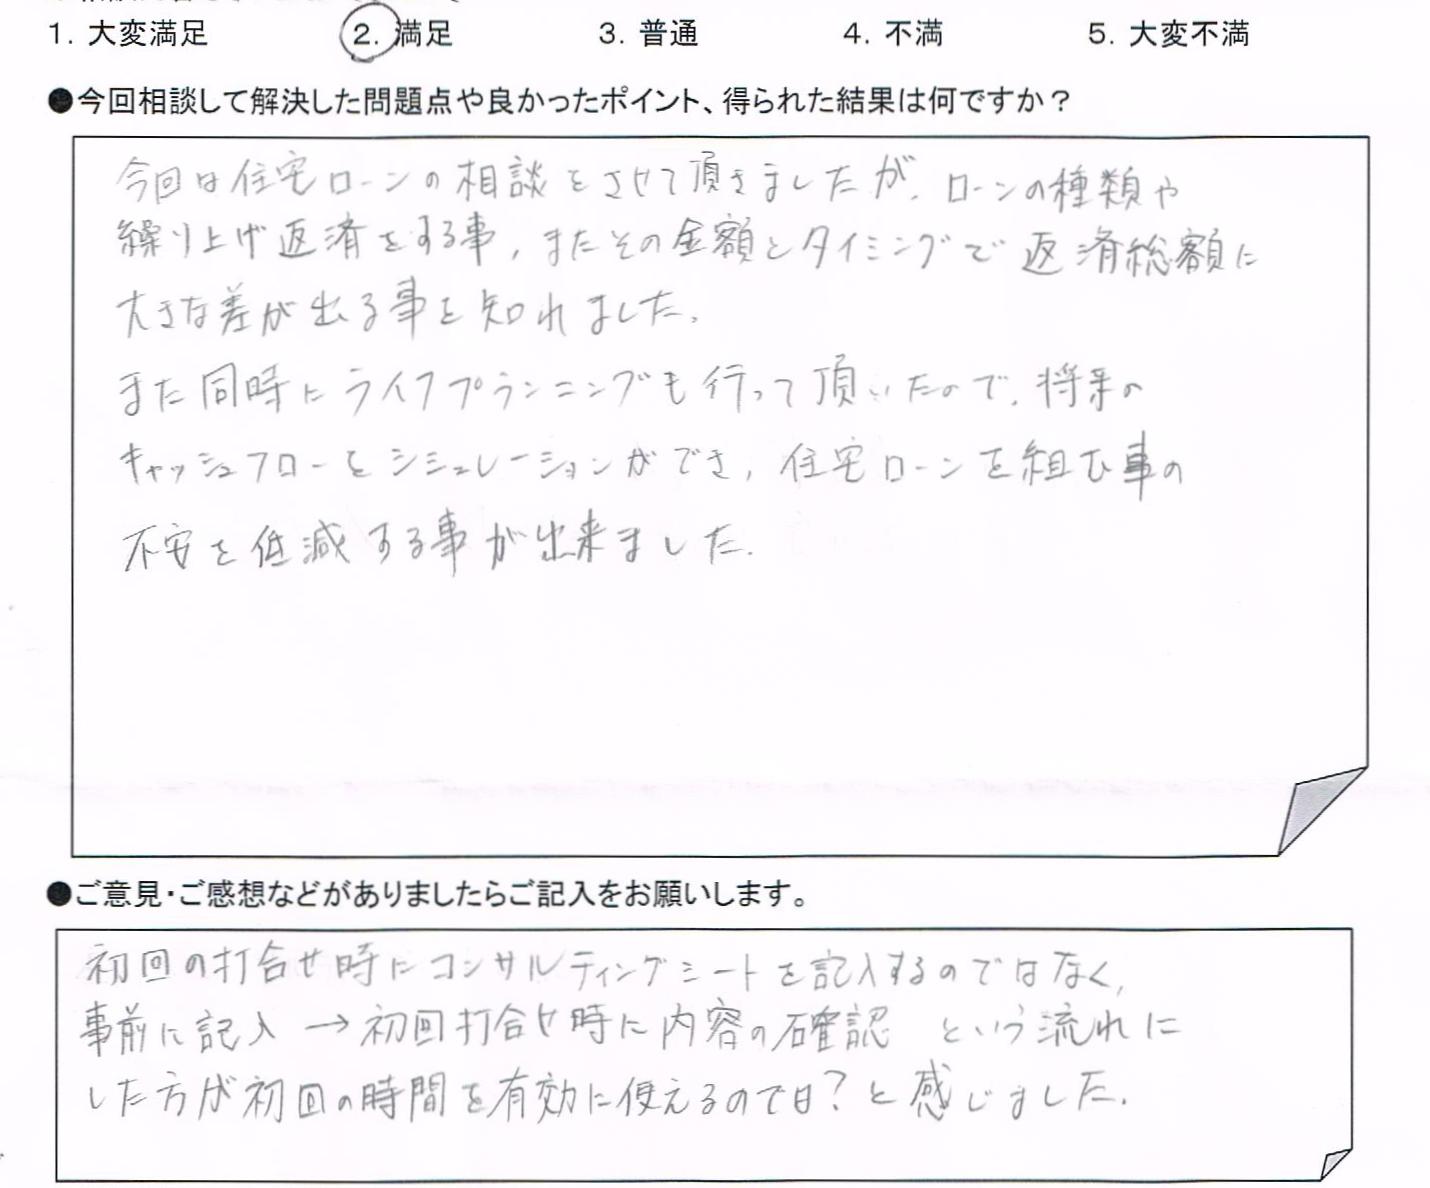 1. 大変満足 2. 満足 3. 普通 4. 不満 5. 大変不満
●今回相談して解決した問題点や良かったポイント、得られた結果は何ですか？
今回は住宅ローンの相談をさせて頂きましたが、ローンの種類や
繰り上げ返済をする事，またその金額とタイミングで返済総額に
大きな差が出る事を知れました。
また同時にライフプランニングも行って頂いたので、将来の
キャッシュフローをシミュレーションができ，住宅ローンを組む事の
不安を低減する事が出来ました．
●ご意見・ご感想などがありましたらご記入をお願いします。
初回の打合せ時にコンサルティングシートを記入するのではなく，
事前に記入 → 初回打合せ時に内容の確認 という流れに
した方が初回の時間を有効に使えるのでは？と感じました．